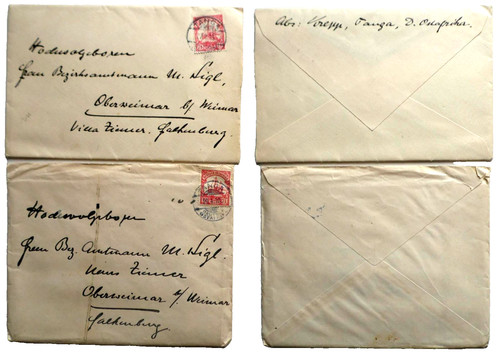 Hochwolgeboren
Frau Bezirksamtmann M. Sigl.
Oberweimar b/ Weimar
Villa Zimer. Falkenburg.
Abs: Krepp, Tanga, D. Ostafrika.
Hochwolgeboren
Frau Bez. Amtmann M. Sigl.
Haus Zimer
Oberweimar b/ Weimar
Falkenburg